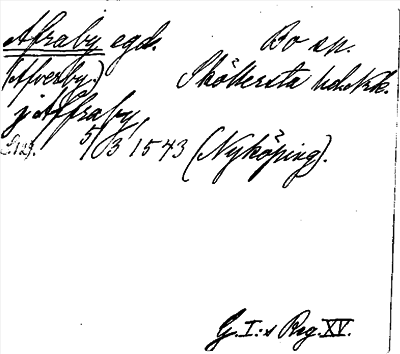 Afraby egd. Bo sn.
(Afverby.) Sköllersta hd. Nke.
j Affraby,
5/3 1543 (Nyköping).
G. I:s Reg. XV.